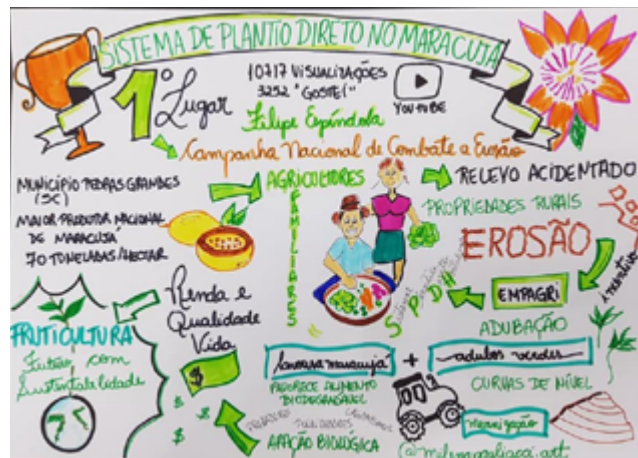 SISTEMA DE PLANTIO DIRETO NO MARACUJÁ
1º Lugar
10717 VISUALIZAÇÕES
3252 "GOSTEI"
YOUTUBE
Filipe Espíndola
Campanha Nacional de Combate a Erosão
MUNICÍPIO PEDRAS GRANDES
(SC)
MAIOR PRODUTOR NACIONAL
DE MARACUJÁ
70 TONELADAS/HECTAR
AGRICULTORES
FAMILIARES
RELEVO ACIDENTADO
PROPRIEDADES RURAIS
EROSÃO
incentivo
EMPAGRI
SPDH
Renda e
Qualidade
Vida
FRUTICULTURA
Futuro com
Sustentabilidade
$
$
$
$
lavoura maracujá + adubos verdes
FAVORECE ALIMENTO
BIODEGRADÁVEL
AÇAÇÃO BIOLÓGICA
ADUBAÇÃO
CURVAS DE NÍVEL